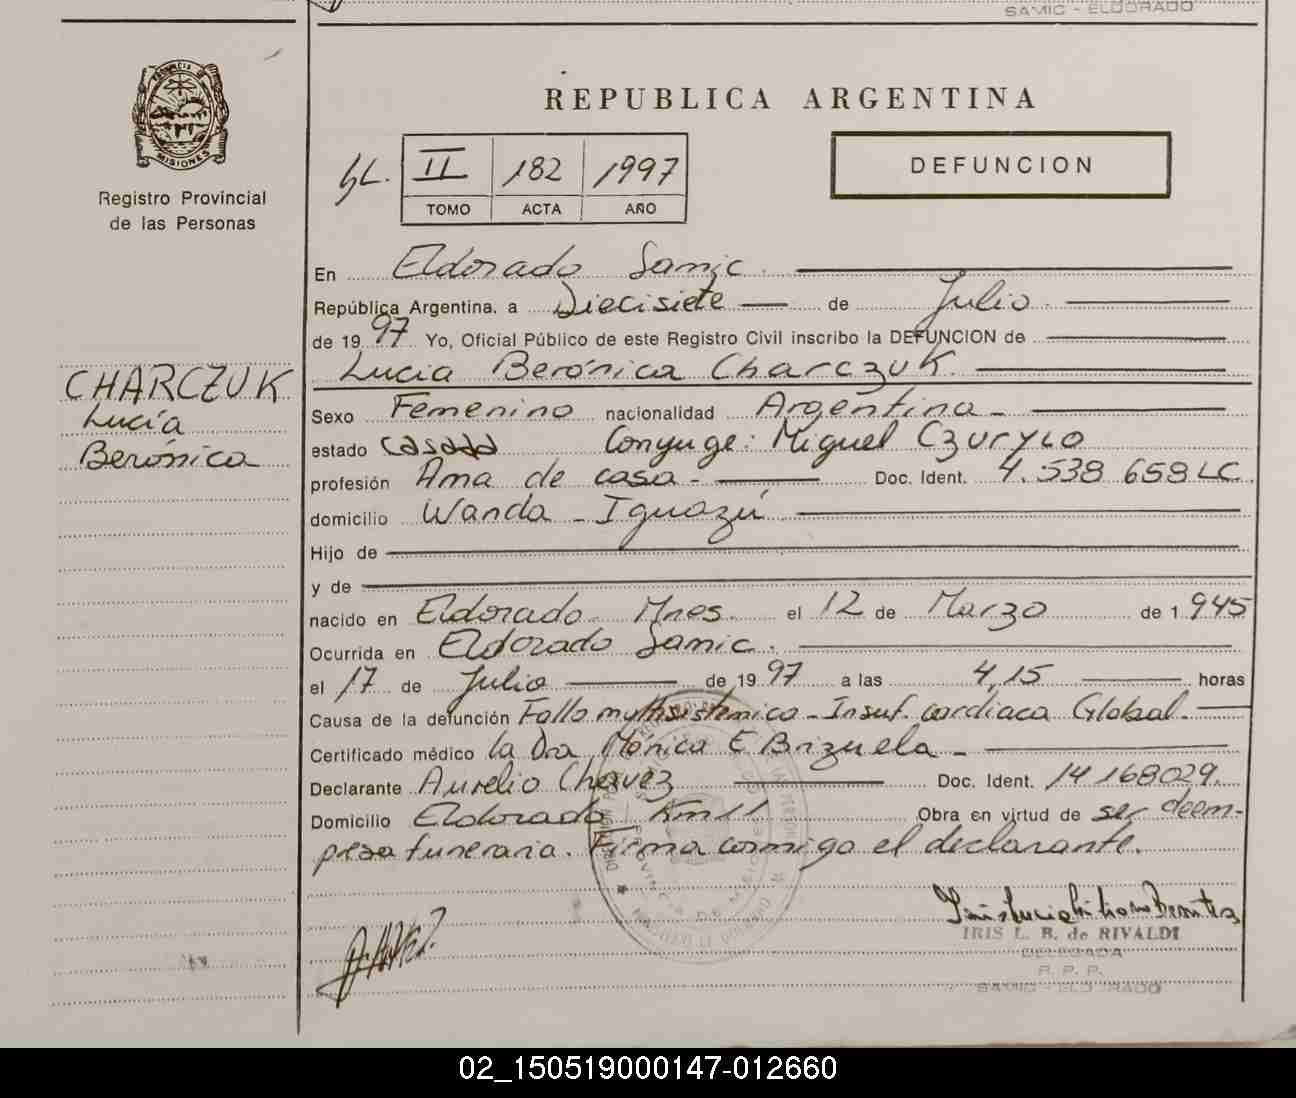 SAMIC - ELDORADO
PROVINCIA DE MISIONES
Registro Provincial
de las Personas
REPUBLICA ARGENTINA
II 182 1997
TOMO ACTA AÑO
DEFUNCION
En Eldorado Samic.
República Argentina, a Diecisiete de Julio
de 1997 Yo, Oficial Público de este Registro Civil inscribo la DEFUNCION de
Lucia Berónica Charczuk.
CHARCZUK
Lucía
Berónica
Sexo Femenino nacionalidad Argentina
estado casada Conyuge: Miguel Czurylo
profesión Ama de casa - Doc. Ident. 4.538 658 LC
domicilio Wanda - Iguazú
Hijo de
y de
nacido en Eldorado Mnes. el 12 de Marzo de 1.945
Ocurrida en Eldorado Samic.
el 17 de Julio de 1997 a las 4,15 horas
Causa de la defunción Falla multisistemica - Insuf. cardiaca Global.
Certificado médico la Dra Mónica E Brizuela -
Declarante Aurelio Chavez Doc. Ident. 14168029.
Domicilio Eldorado Km 11 Obra en virtud de ser de em-
presa funeraria. Firma conmigo el declarante.
IRIS L. B. de RIVALDI
DELEGADA
R. P. P.
SAMIC - ELDORADO
02_150519000147-012660